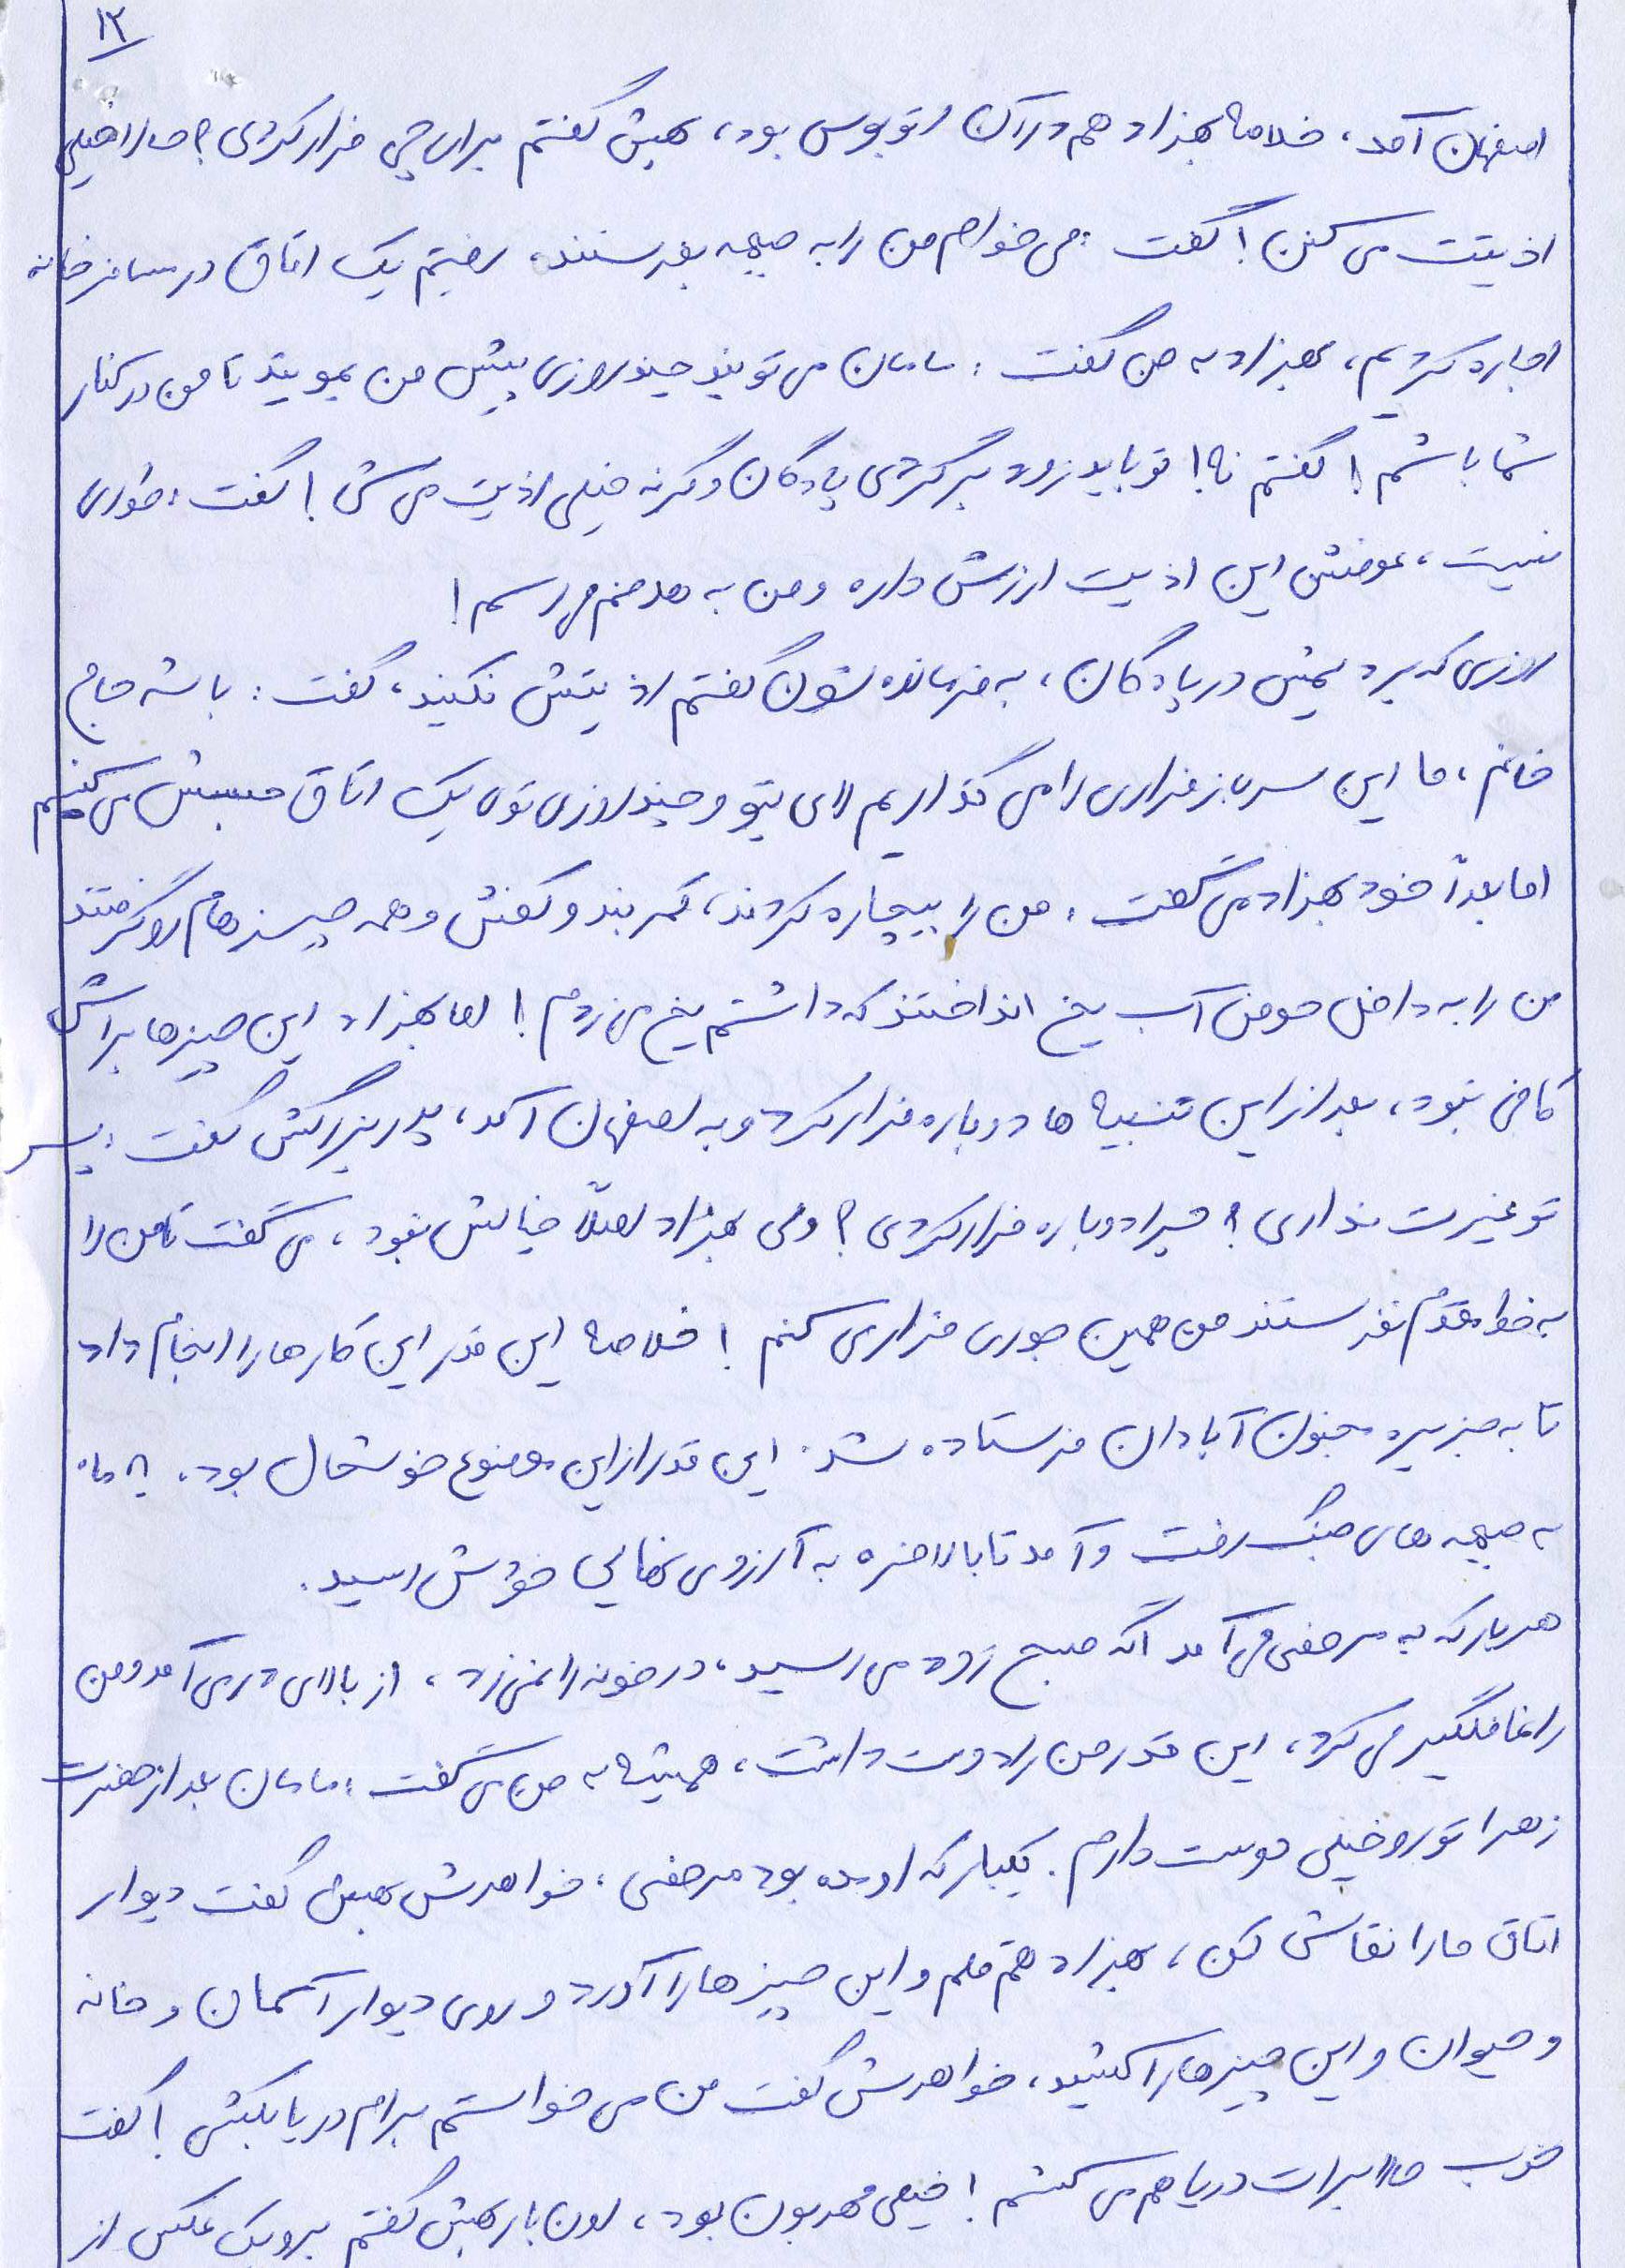 ۱۲
اصفهان آمد، خلاصه بهزاد هم در آن اتوبوس بود، بهش گفتم برای چی فرار کردی؟ حالا خیلی
اذیتت می کنن! گفت: می خوام من را به جبهه بفرستند، رفتیم یک اتاق در مسافرخانه
اجاره کردیم، بهزاد به من گفت: مامان می تونید چند روزی پیش من بمونید تا من در کنار
شما باشم! گفتم نه! تو باید زود برگردی پادگان وگرنه خیلی اذیت می شی! گفت: طوری
نیست، عوضش این اذیت ارزش داره و من به هدفم می رسم!
روزی که بردیمش در پادگان، به فرمانده شون گفتم اذیتش نکنید، گفت: باشه حاج
خانم، ما این سرباز فراری را می گذاریم لای پتو و چند روزی توی یک اتاق حبسش می کنیم
اما بعداً خود بهزاد می گفت: من را بیچاره کردند، کمربند و کفش و همه چیزهام رو گرفتند
من را به داخل حوض آب یخ انداختند که داشتم یخ می زدم! اما بهزاد این چیزها براش
کافی نبود، بعد از این تنبیه ها دوباره فرار کرد و به اصفهان آمد، پدربزرگش گفت: پسر
تو غیرت نداری؟ چرا دوباره فرار کردی؟ ولی بهزاد اصلاً خیالش نبود، می گفت تا من را
به خط مقدم نفرستند من همین جوری فراری کنم! خلاصه این قدر این کارها را انجام داد
تا به جزیره مجنون آبادان فرستاده شد. این قدر از این موضوع خوشحال بود، ۸ ماه
به جبهه های جنگ رفت و آمد تا بالاخره به آرزوی نهایی خودش رسید.
هر بار که به مرخصی می آمد اگه صبح زود می رسید، در خونه را نمی زد، از بالای در می آمد و من
را غافلگیر می کرد، این قدر من را دوست داشت، همیشه به من می گفت: مامان بعد از حضرت
زهرا تو رو خیلی دوست دارم. یکبار که اومده بود مرخصی، خواهرش بهش گفت دیوار
اتاق ما را نقاشی کن، بهزاد هم قلم و این چیزها را آورد و روی دیوار آسمان و خانه
و حیوان و این چیزها را کشید، خواهرش گفت من می خواستم برام دریا بکشی! گفت
خوب حالا برات دریا هم می کشم! خیلی مهربون بود، اون بار بهش گفتم برو یک عکس از